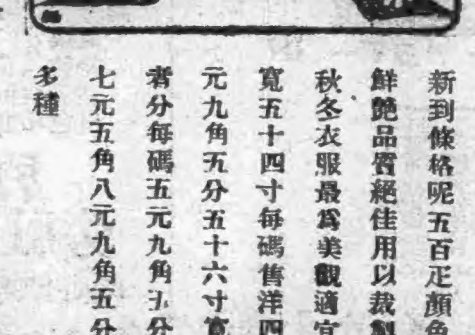 新到條格呢五百疋顏色
鮮艷品質絕佳用以裁製
秋冬衣服最爲美觀適宜
寬五十四寸每碼售洋四
元九角五分五十六寸寬
者分每碼五元九角五分
七元五角八元九角五分
多種